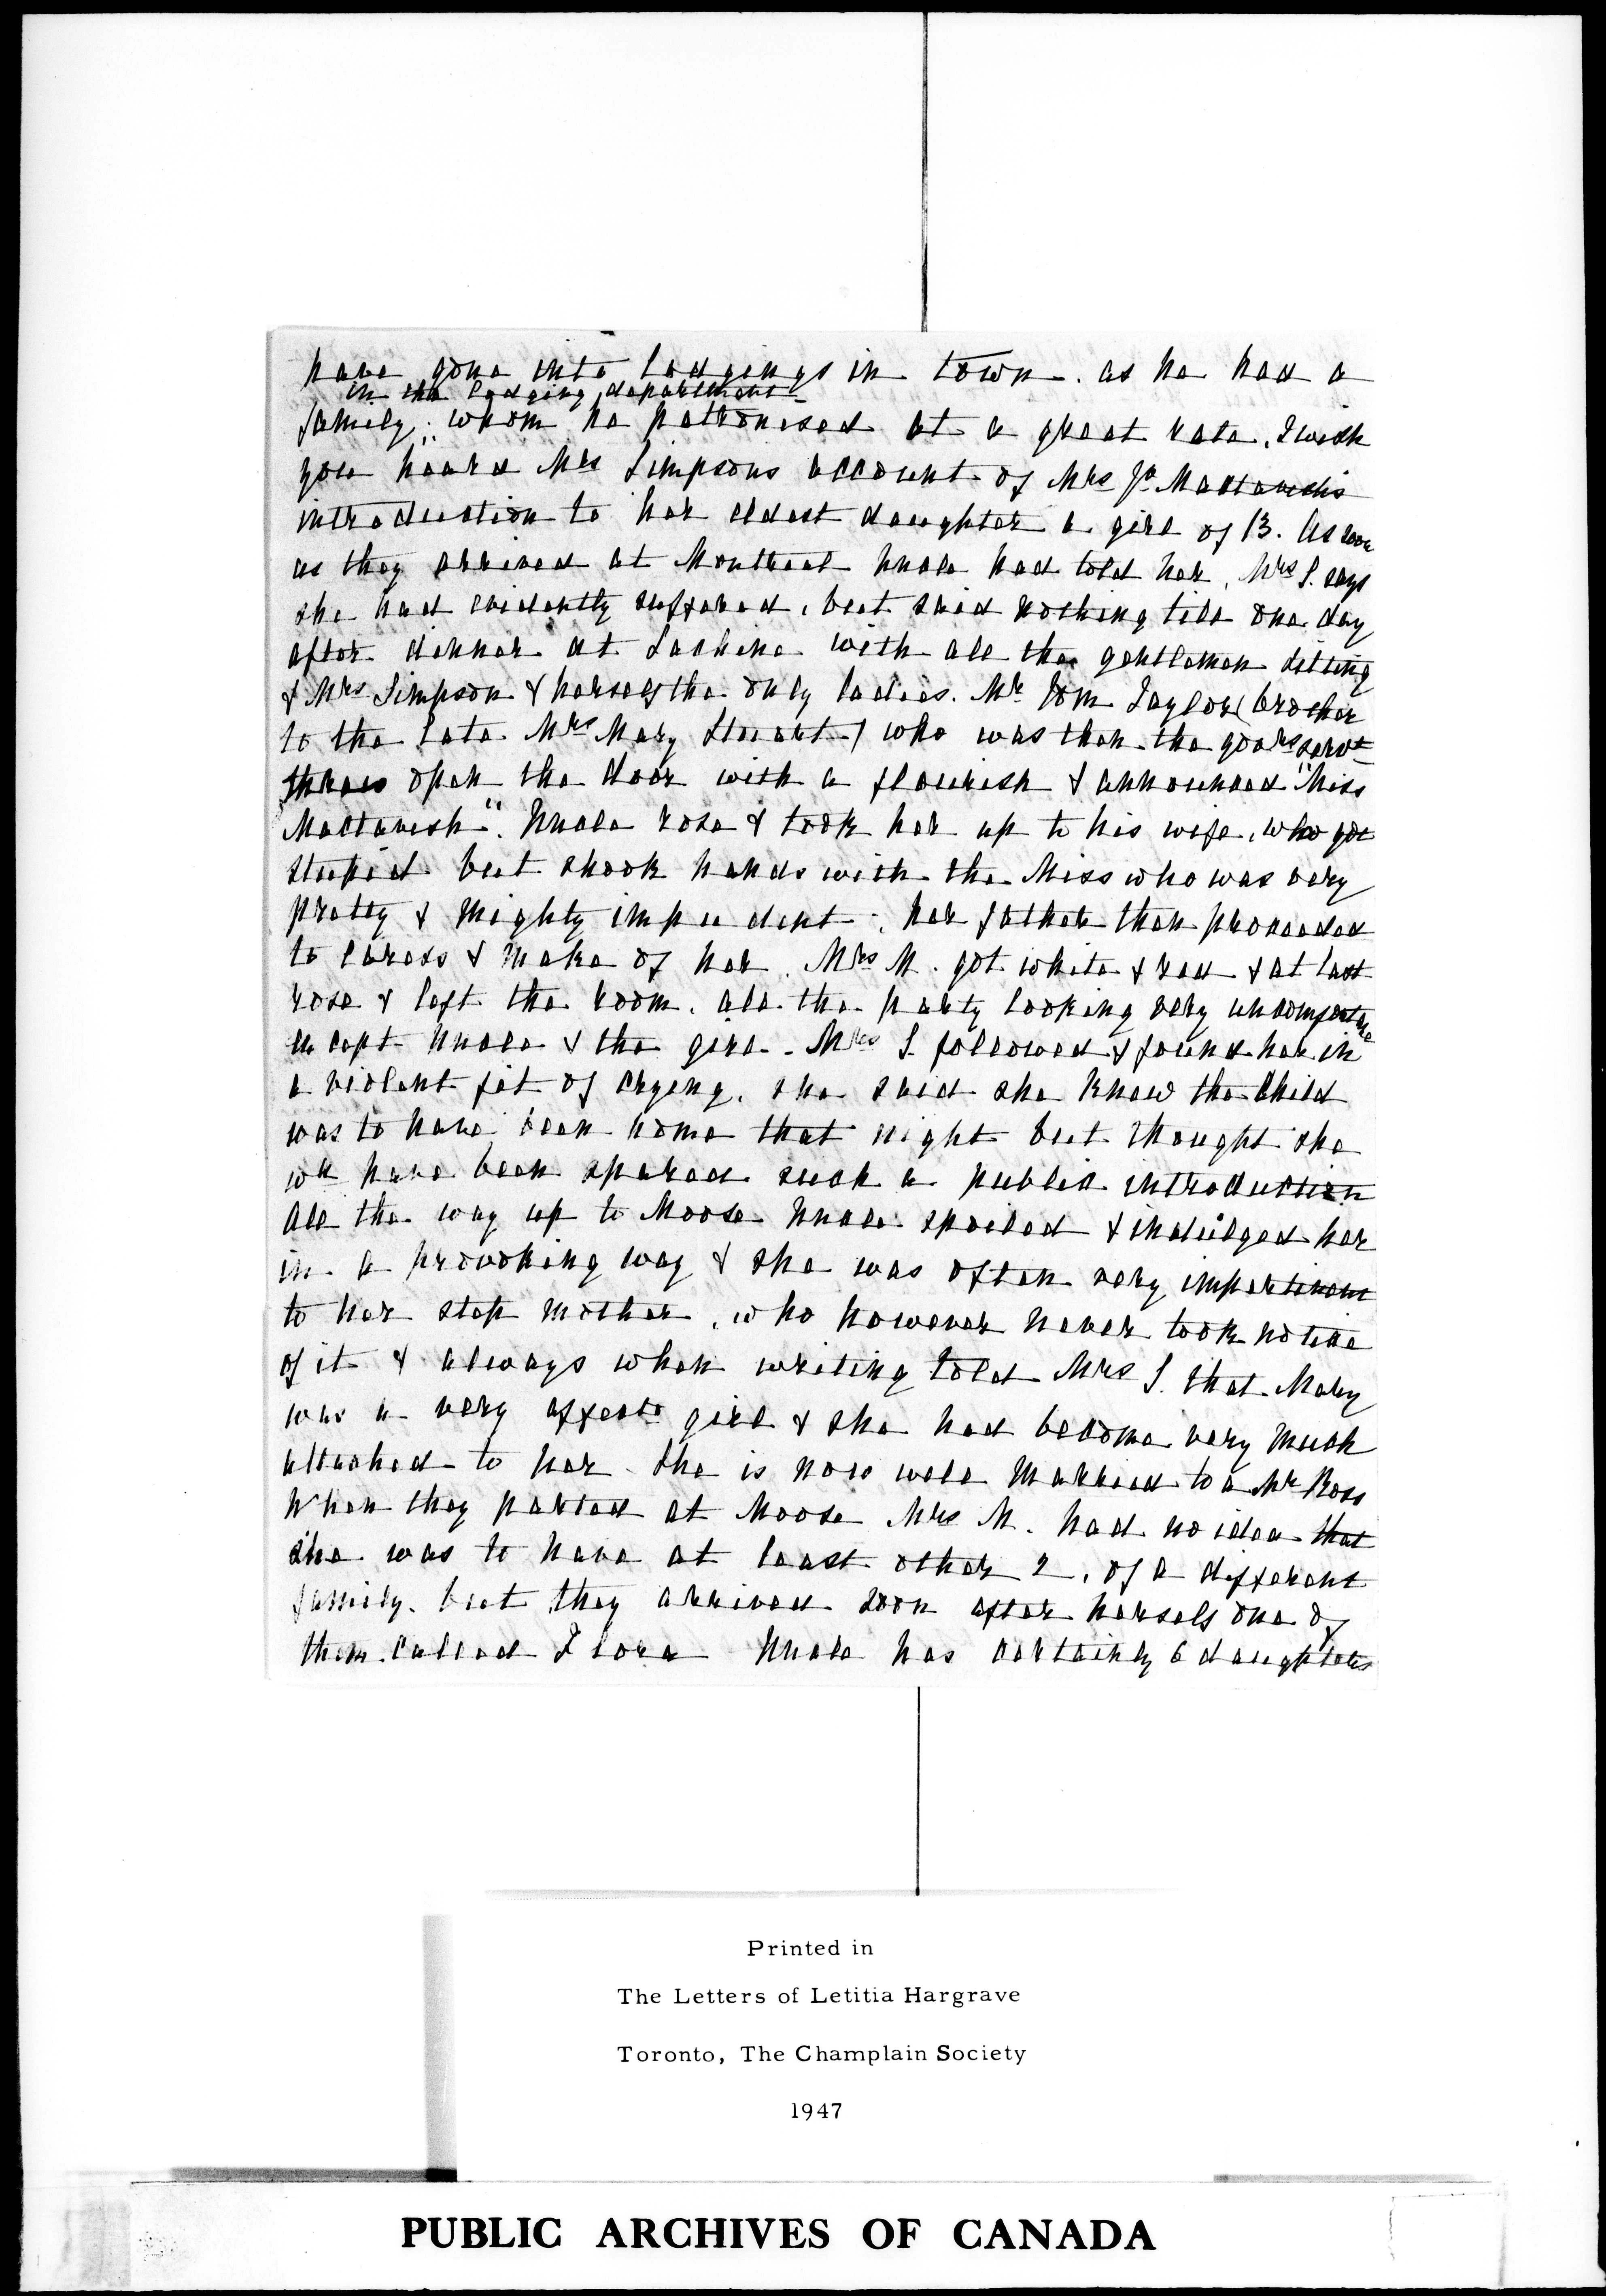 have gone into lodgings in town. as he had a
in the lodging department
family, whom he patronised at a great rate. I wish
you heard Mrs Simpsons account of Mrs Jn Mactavishs
introduction to her eldest daughter a girl of 13. As soon
as they arrived at Montreal Uncle had told her. Mrs S. says
she had evidently suffered, but said nothing till one day
after dinner at Lachine with all the gentlemen sitting
& Mrs Simpson & herself the only ladies. Mr Tom Taylor (brother
to the late Mrs Mary Stewart) who was then the govrs servt
threw open the door with a flourish & announced "Miss
Mactavish". Uncle rose & took her up to his wife, who got
stupid but shook hands with the Miss who was very
pretty & mighty impudent. her father then proceeded
to caress & make of her. Mrs M. got white & red & at last
rose & left the room. all the party looking very uncomfortable
except Uncle & the girl. Mrs S. followed & found her in
a violent fit of crying. she said she knew the child
was to have been home that night but thought she
wd have been spared such a public introduction
All the way up to Moose Uncle spoiled & indulged her
in a provoking way & she was often very impertinent
to her step mother, who however never took notice
of it & always when writing told Mrs S. that Mary
was a very affecte girl & she had become very much
attached to her. She is now well married to a Mr Ross
When they parted at Moose Mrs M. had no idea that
she was to have at least other 2, of a different
family. but they arrived soon after herself one of
them called Flora Uncle has certainly 6 daughters
Printed in
The Letters of Letitia Hargrave
Toronto, The Champlain Society
1947
PUBLIC ARCHIVES OF CANADA